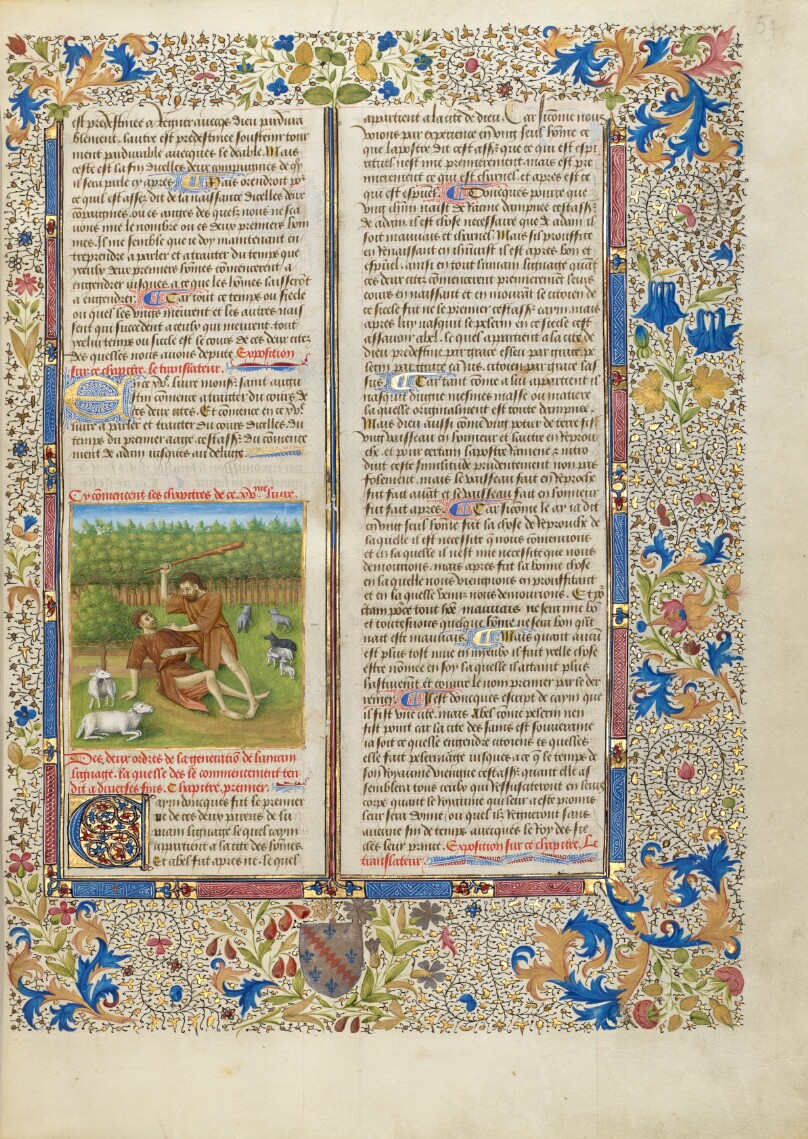 est predestinee a regner avecqs dieu pardura
blement. lautre est predestinee soustenir tour
ment pardurable avecques le deable. Mais
ceste est la fin dicelles deux compaignies de q̄
il sera parle cy apres Mais orendroit po
ce quil est assez dit de la naissance dicelles deux
compaignies. ou es anges des quelz nous ne sca
uons mie le nombre ou es deux premiers hom
mes. Il me semble que ie doy maintenant en
treprendre a parler et a traitter du temps que
yceulx deux premiers hōmes cōmencerent a
engendrer iusques a ce que les hōmes laisserōt
a engendrer. Car tout ce temps ou siecle
ou quel les vngs meurent et les autres nais
sent qui succedent a ceulx qui meurent. tout
ycelui temps ou siecle est le cours de ces deux citez
des quelles nous auons dispute Exposition
sur ce chapitre. le translateur.
En ce xve. liure monss. saint augu
stin cōmence a traitter du cours de
ces deux citez. Et cōmence en ce xve.
liure a parler et traitter du cours dicelles. du
temps du premier aage. cestass. du cōmence
ment de adam iusques au deluge.
Cy cōmencent les chapitres de ce xvme liure.
Des deux ordres de la generatiō de lumain
lignage. la quelle des le commencement ten
dit a diuerses fins. Chapitre. premier.
Cayn doncques fut le premier
ne de ces deux parens de lu
main lignage le quel cayn
appartient a la cite des hōmes
Et abel fut apres ne. le quel
appartient a la cite de dieu. Car sicome nous
veons par experience en vng seul hōme ce
que lapostre dit cest ass. que ce qui est espi
rituel nest mie premierement. mais est pre
mierement ce qui est charnel. et apres est ce
qui est espūel. Doncques pource que
vng chūn naist de racine dampnee cestass.
de adam. il est chose necessaire que de adam il
soit mauuais et charnel. Mais sil prouffite
en renaissant en ihūcrist il est apres bon et
espūel. ainsi en tout lumain lignage quāt
ces deux citez cōmencerent premierement leurs
cours en naissant et en mourāt le citoien de
ce siecle fut ne le premier cestass. cayn. mais
apres luy nasquit le pelerin en ce siecle cest
assauoir abel. le quel appartient a la cite de
dieu predestine par grace esleu par grace. pe
lerin par grace ca ius. citoyen par grace las
sus. Car tant come a lui appartient il
nasquit dicelle mesmes masse ou matiere
la quelle originalment est toute dampnee.
Mais dieu aussi come dung potier de terre fist
vng vaisseau en honneur et lautre en reprou
che. et pour certain lapostre ramene et intro
duit ceste similitude prudentement non pas
folement. mais le vaisseau fait en reproche
fut fait auāt et le vaisseau fait en honneur
fut fait apres Car sicome ie ay ia dit
en vng seul hōme fut la chose de reprouche de
la quelle il est necessite q̄ nous cōmencions
et en la quelle il nest mie necessite que nous
demourions. mais apres fut la bonne chose
en la quelle nous viengnons en prouffitant
et en la quelle venus nous demourons.
mauuais ne sera mie bō
et touteffois quelque hōme ne sera bon qui
nait este mauuais. Mais quant aucū
est plus tost mue en mieulx il fait ycelle chose
estre nōmee en soy la quelle il attaint plus
hastiuement et cueuure le nom premier par le der
renier. Il est doncques escript de cayn que
il fist vne cite. mais Abel come pelerin nen
fist point car la cite des sains est souueraine
ia soit ce quelle engendre citoiens es quelles
elle fait pelerinage iusques a ce q̄ le temps de
son royaume viengne cestass. quant elle as
semblera tous ceulx qui ressusciteront en leurs
corps quant le royaume qui leur a este promis
leur sera donne. ou quel ilz regneront sans
aucune fin de temps avecques le roy des sie
cles leur prince. Exposition sur ce chapitre. Le
translateur.